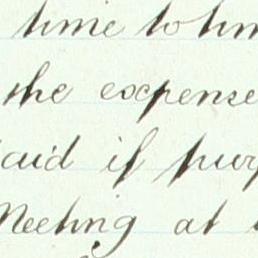 time to tim
the expense
said if purp
Meeting at